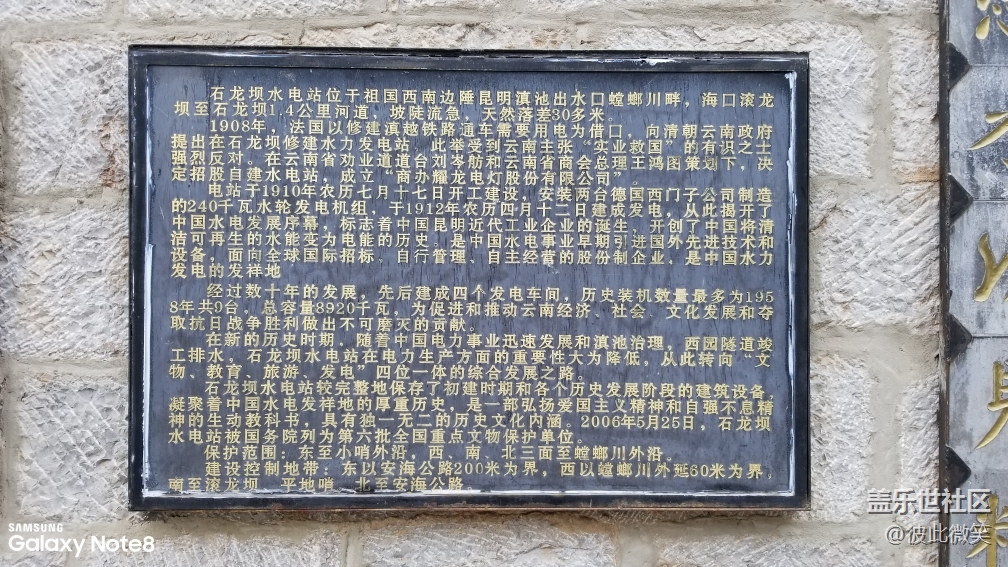 石龙坝水电站位于祖国西南边陲昆明滇池出水口螳螂川畔，海口滚龙
坝至石龙坝1.4公里河道，坡陡流急，天然落差30多米。
1908年，法国以修建滇越铁路通车需要用电为借口，向清朝云南政府
提出在石龙坝修建水力发电站。此举受到云南主张“实业救国”的有识之士
强烈反对。在云南省劝业道道台刘岑舫和云南省商会总理王鸿图策划下，决
定招股自建水电站，成立“商办耀龙电灯股份有限公司”。
电站于1910年农历七月十七日开工建设，安装两台德国西门子公司制造
的240千瓦水轮发电机组，于1912年农历四月十二日建成发电，从此揭开了
中国水电发展序幕，标志着中国昆明近代工业企业的诞生、开创了中国将清
洁可再生的水能变为电能的历史。是中国水电事业早期引进国外先进技术和
设备，面向全球国际招标、自行管理、自主经营的股份制企业、是中国水力
发电的发祥地
经过数十年的发展，先后建成四个发电车间，历史装机数量最多为195
8年共9台，总容量8920千瓦，为促进和推动云南经济、社会、文化发展和夺
取抗日战争胜利做出不可磨灭的贡献。
在新的历史时期，随着中国电力事业迅速发展和滇池治理，西园隧道竣
工排水。石龙坝水电站在电力生产方面的重要性大为降低，从此转向“文
物、教育、旅游、发电”四位一体的综合发展之路。
石龙坝水电站较完整地保存了初建时期和各个历史发展阶段的建筑设备，
凝聚着中国水电发祥地的厚重历史，是一部弘扬爱国主义精神和自强不息精
神的生动教科书，具有独一无二的历史文化内涵。2006年5月25日，石龙坝
水电站被国务院列为第六批全国重点文物保护单位。
保护范围：东至小哨外沿，西、南、北三面至螳螂川外沿。
建设控制地带：东以安海公路200米为界，西以螳螂川外延60米为界，
南至滚龙坝、平地哨，北至安海公路。
SAMSUNG
Galaxy Note8
盖乐世社区
@彼此微笑